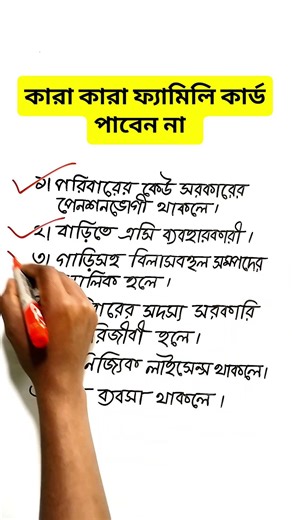 কারা কারা ফ্যামিলি কার্ড
পাবেন না
১। পরিবারের কেউ সরকারের
পেনশনভোগী থাকলে।
২। বাড়িতে এসি ব্যবহারকারী।
৩। গাড়িসহ বিলাসবহুল সম্পদের
মালিক হলে।
সদস্য সরকারি
হলে।
লাইসেন্স থাকলে।
ব্যবসা থাকলে।